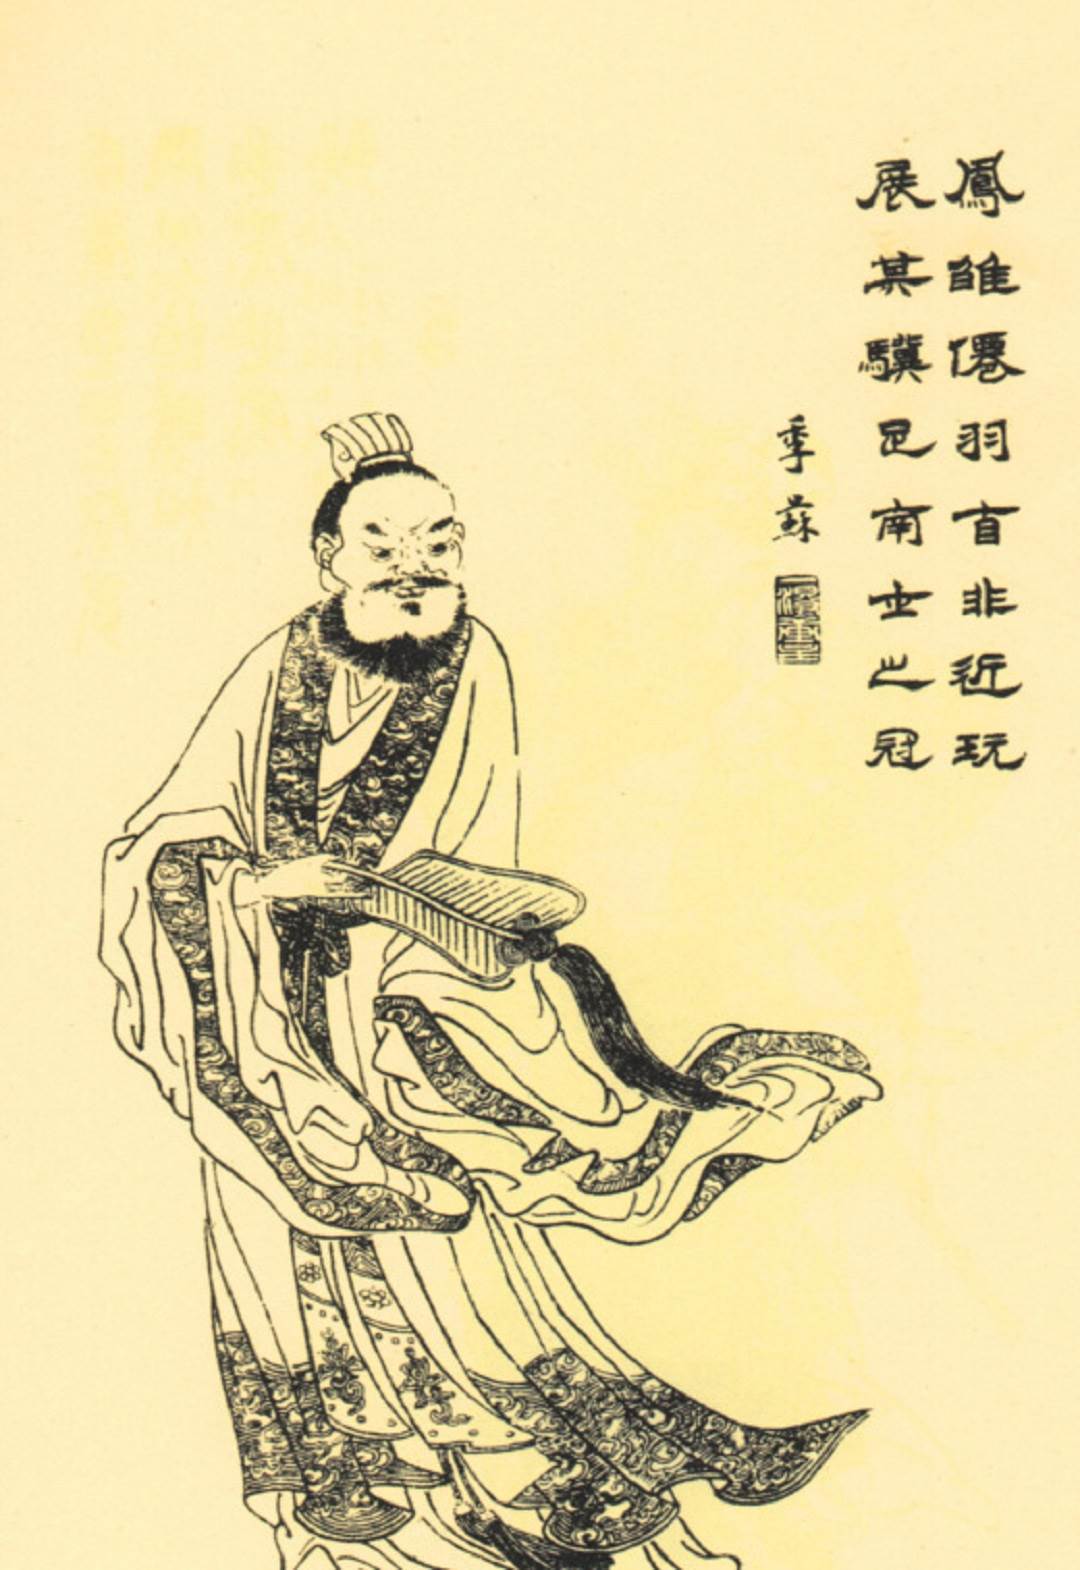 鳳雏僊羽首非近玩
展其驥足南士之冠
季蘇